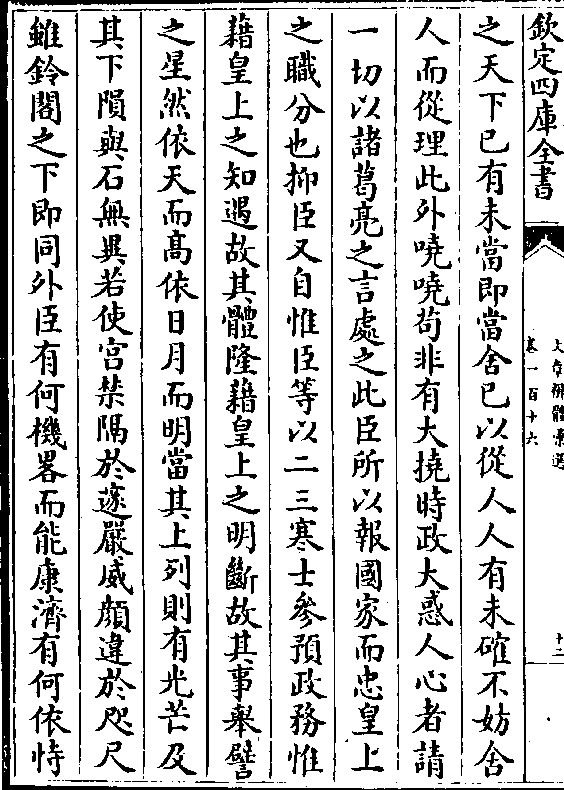 欽定四庫全書
文章辨體彙選
卷一百十六
十二
之天下已有未當即當舍已以從人人有未確不妨舍
人而從理此外嘵嘵苟非有大撓時政大惑人心者請
一切以諸葛亮之言處之此臣所以報國家而忠皇上
之職分也抑臣又自惟臣等以二三寒士參預政務惟
藉皇上之知遇故其體隆藉皇上之明斷故其事舉譬
之星然依天而髙依日月而明當其上列則有光芒及
其下隕與石無異若使宫禁隔於邃嚴威顔違於咫尺
雖鈴閣之下即同外臣有何機畧而能康濟有何依恃